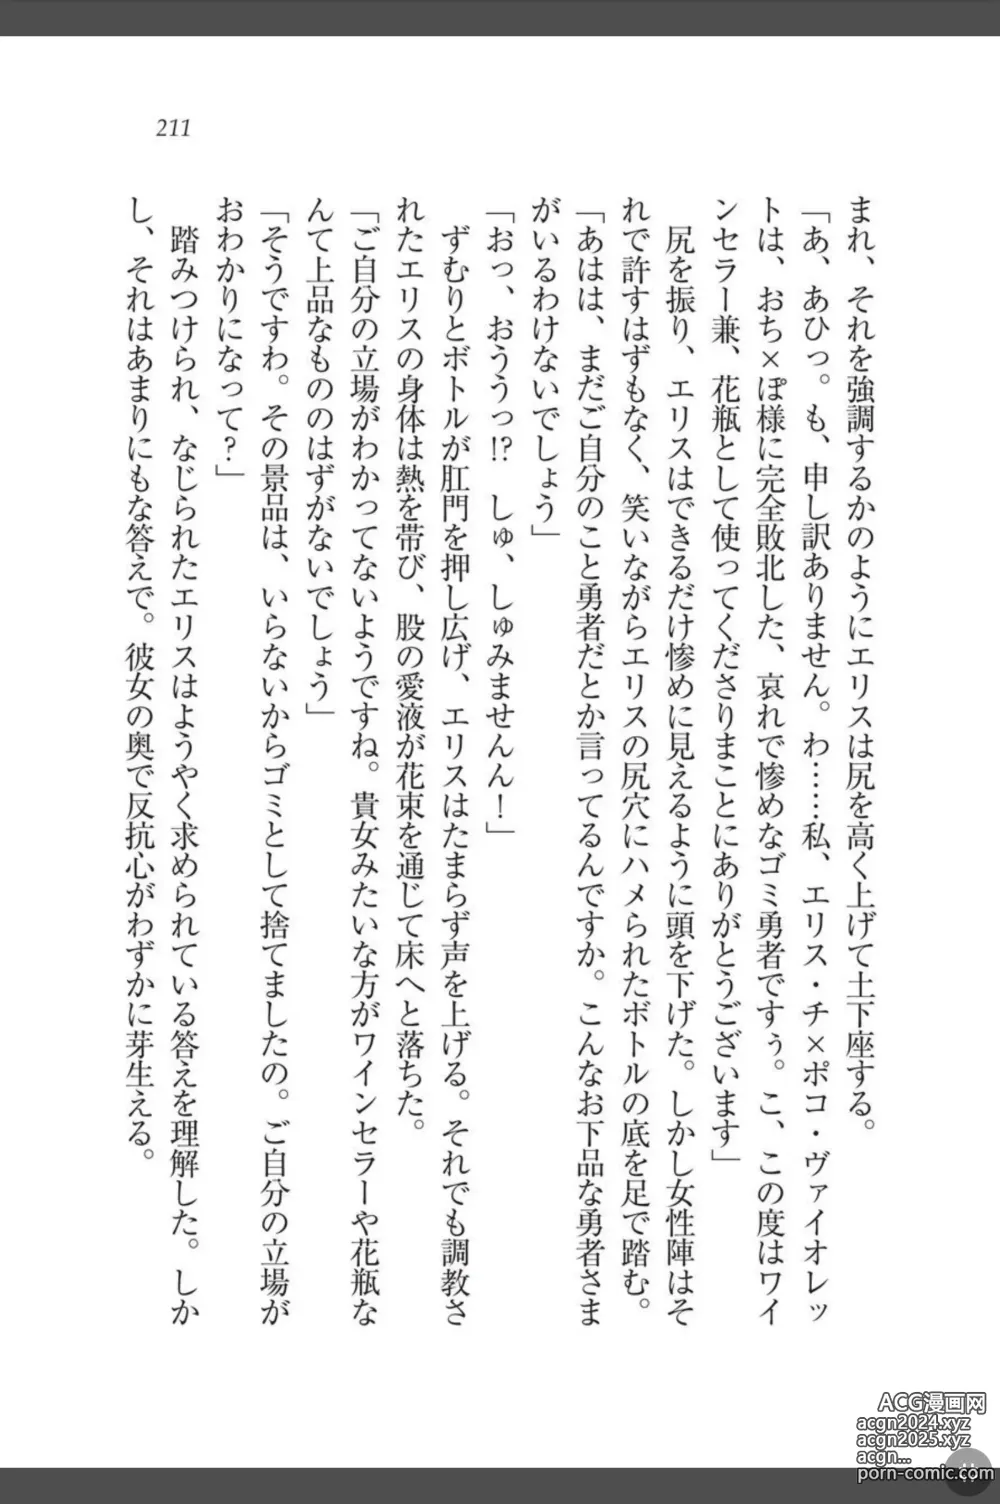 211
まれ、それを強調するかのようにエリスは尻を高く上げて土下座する。
「あ、あひっ。も、申し訳ありません。わ……私、エリス・チ×ポコ・ヴァイオレッ
トは、おち×ぽ様に完全敗北した、哀れで惨めなゴミ勇者ですぅ。こ、この度はワイ
ンセラー兼、花瓶として使ってくださりまことにありがとうございます」
　尻を振り、エリスはできるだけ惨めに見えるように頭を下げた。しかし女性陣はそ
れで許すはずもなく、笑いながらエリスの尻穴にハメられたボトルの底を足で踏む。
「あはは、まだご自分のこと勇者だとか言ってるんですか。こんなお下品な勇者さま
がいるわけないでしょう」
「おっ、おううっ!?　しゅ、しゅみませんん！」
　ずむりとボトルが肛門を押し広げ、エリスはたまらず声を上げる。それでも調教さ
れたエリスの身体は熱を帯び、股の愛液が花束を通じて床へと落ちた。
「ご自分の立場がわかってないようですね。貴女みたいな方がワインセラーや花瓶な
んて上品なもののはずがないでしょう」
「そうですわ。その景品は、いらないからゴミとして捨てましたの。ご自分の立場が
おわかりになって？」
　踏みつけられ、なじられたエリスはようやく求められている答えを理解した。しか
し、それはあまりにもな答えで。彼女の奥で反抗心がわずかに芽生える。
ACG漫画网
acgn2024.xyz
acgn2025.xyz
acgn...
porn-comic.com